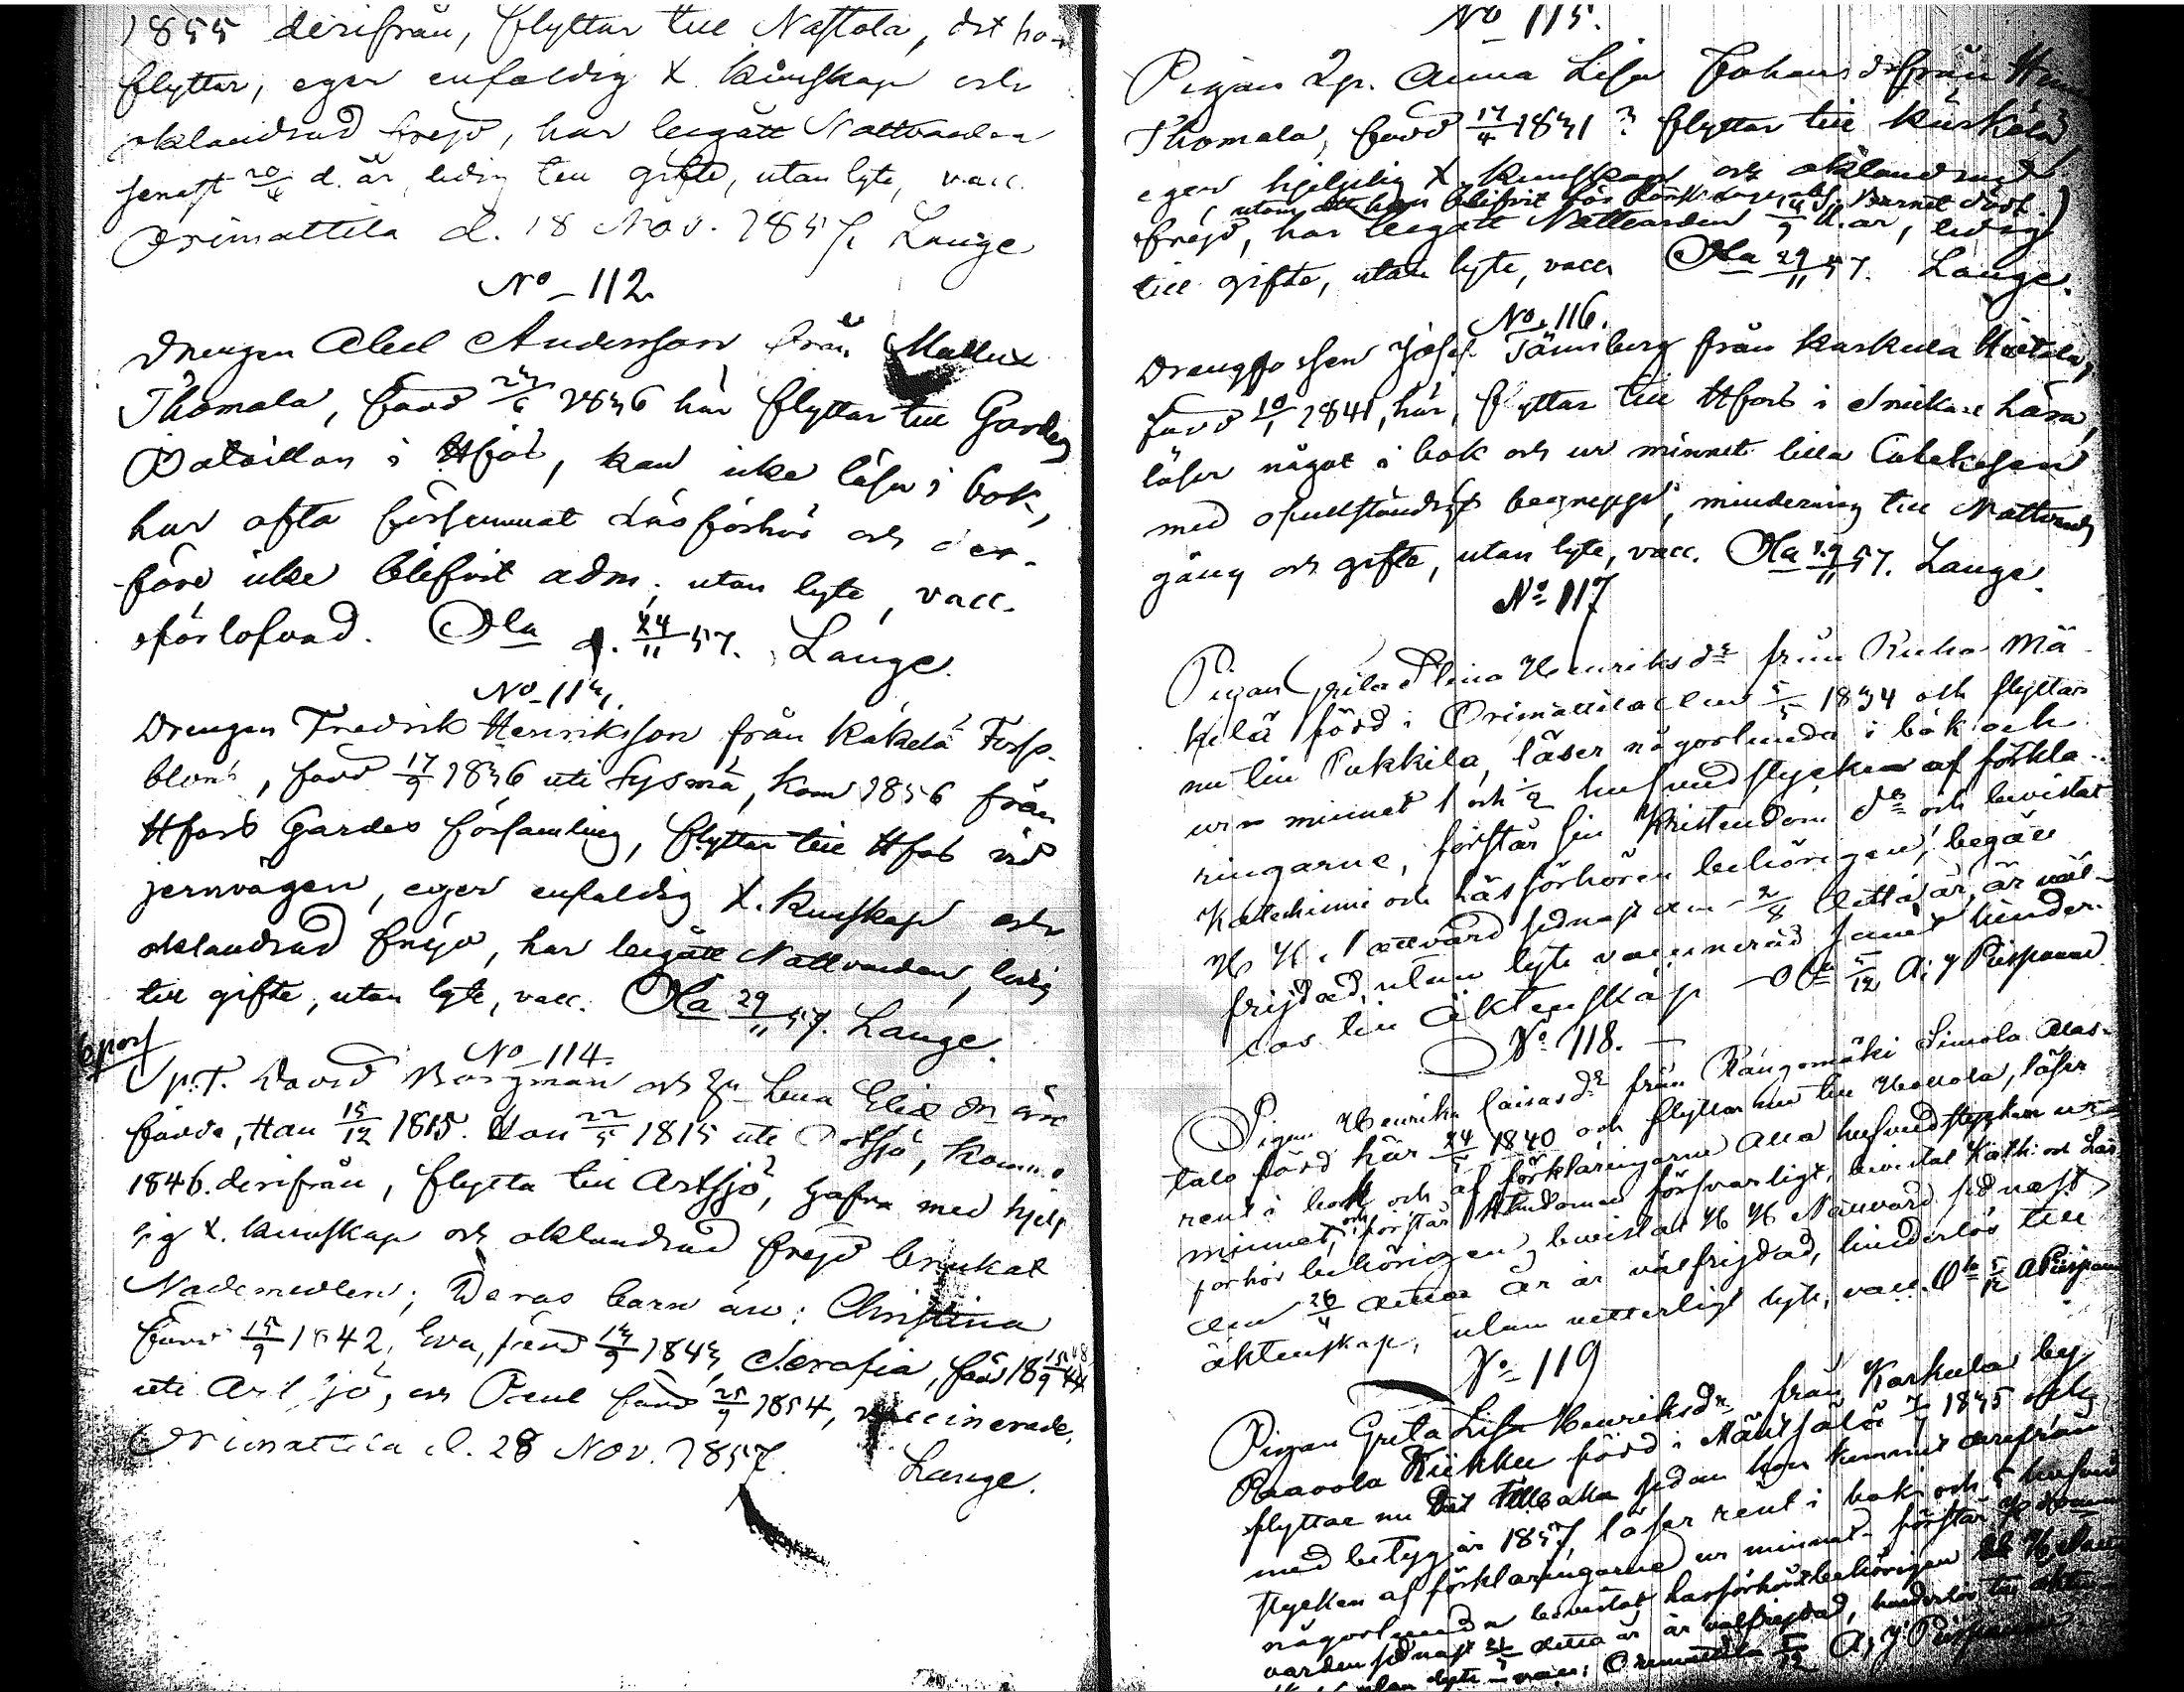 1855 derifrån, flyttar till Nastola, dit hon
flyttar, eger enfaldig X. kunskap och
oklandrad frejd, har begått Nattvarden
senast 20/4 d. år, ledig till gifte, utan lyte, vacc.
Orimattila d. 18 Nov. 1857. Lange
No 112.
Drengen Abel Andersson från Mallux
Thomala, född 23/6 1836 här flyttar till Gardes
Bataillon i Hfors, kan icke läsa i bok,
har ofta försummat Läsförhör och der-
före icke blifvit adm; utan lyte, vacc.
oförlofvad. Ola d. 24/11 57. Lange.
No 113.
Drengen Fredrik Henriksson från Käkelä Forss-
bloms, född 17/9 1836 uti Sysmä, kom 1856 från
Hfors Gardes församling, flyttar till Hfors vid
jernvägen, eger enfaldig X. kunskap och
oklandrad frejd, har begått Nattvarden, ledig
till gifte, utan lyte, vacc. Ola 29/11 57. Lange.
No 114.
6 pors
Sp.T. David Borgman och Hu Lena Elis dr äro
födde, Han 15/12 1815. Hon 22/5 1815 uti Artsjö, kommo
1846 derifrån, flytta till Artsjö, hafva med hjelp
lig X. kunskap och oklandrad frejd brukat
Nådemedlen; Deras barn äro: Christina
född 15/9 1842, Eva, född 13/9 1843, Serafia, född 18
uti Artsjö, och Paul född 25/9 1854, vaccinerade.
Orimattila d. 28 Nov. 1857. Lange.
No 115.
Pigan Anna Lisa Johansdr från
Thomala, född 17/4 1831? flyttar till Kärkölä,
eger hjelplig X. kunskap och oklandrad
(utom att hon blifvit för Barnet dödt.)
frejd, har begått Nattvarden d. år, ledig
till gifte, utan lyte, vacc. Ola 29/11 57. Lange.
No 116.
Drenggossen Josef Tämberg från Karkula Hietala,
född 10/1 1841, här, flyttar till Hfors i Snickare lära,
läser något i bok och ur minnet lilla Catekesen
med ofullständigt begrepp, minderårig till Nattvards
gång och gifte, utan lyte, vacc. Ola 29/11 57. Lange.
No 117
Pigan Henriksdr från Ruha Mä-
kelä född i Orimattila den 5/5 1834 och flyttar
nu till Pukkila, läser någorlunda i bok och
ur minnet 1 och 1/2 hufvudstycken af förkla-
ringarne, förstår sin Kristendom do och bevistat
Katechismi och Läsförhören behörigen, begått
H H Nattvard sednast den 2/8 detta år, är väl-
frejdad, utan lyte vaccinerad samt hinder-
lös till äktenskap Ola 5/12 A; J Piispanen
No 118.
Pigan Henrika Caisasdr från Kängsmäki Simola Alas-
talo född här 24/5 1840 och flyttar nu till Hollola, läser
rent i bok och af förklaringarne alla hufvudstycken ur
minnet, och förstår Kristendomen försvarligt, bevistat Kath: och Läs
förhör behörigen, bevistat H H Nattvard sednast
den 26/4 detta år är välfrejdad, hinderlös till
äktenskap, utan vetterligt lyte, vacc. Ola 5/12 A Piispanen
No 119
Pigan Greta Lisa Henriksdr från Karkula by
Paavola Kiikku född i Mäntsälä 1835 och
flyttar nu dit tillbaka sedan hon kommit derifrån
med betyg år 1857, läser rent i bok och 5 hufvud
stycken af förklaringarne ur minnet förstår
någorlunda bevistat läsförhör behörigen
varden sednast detta år är välfrejdad, hinderlös till äkten
utan lyte vacc: Orimattila 5/12 A; J Piispanen